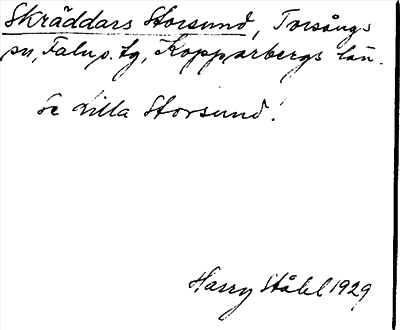 Skräddars Storsund, Torsångs
sn, Falu s. tg, Kopparbergs län.
Se Lilla Storsund!
Harry Ståhl 1929